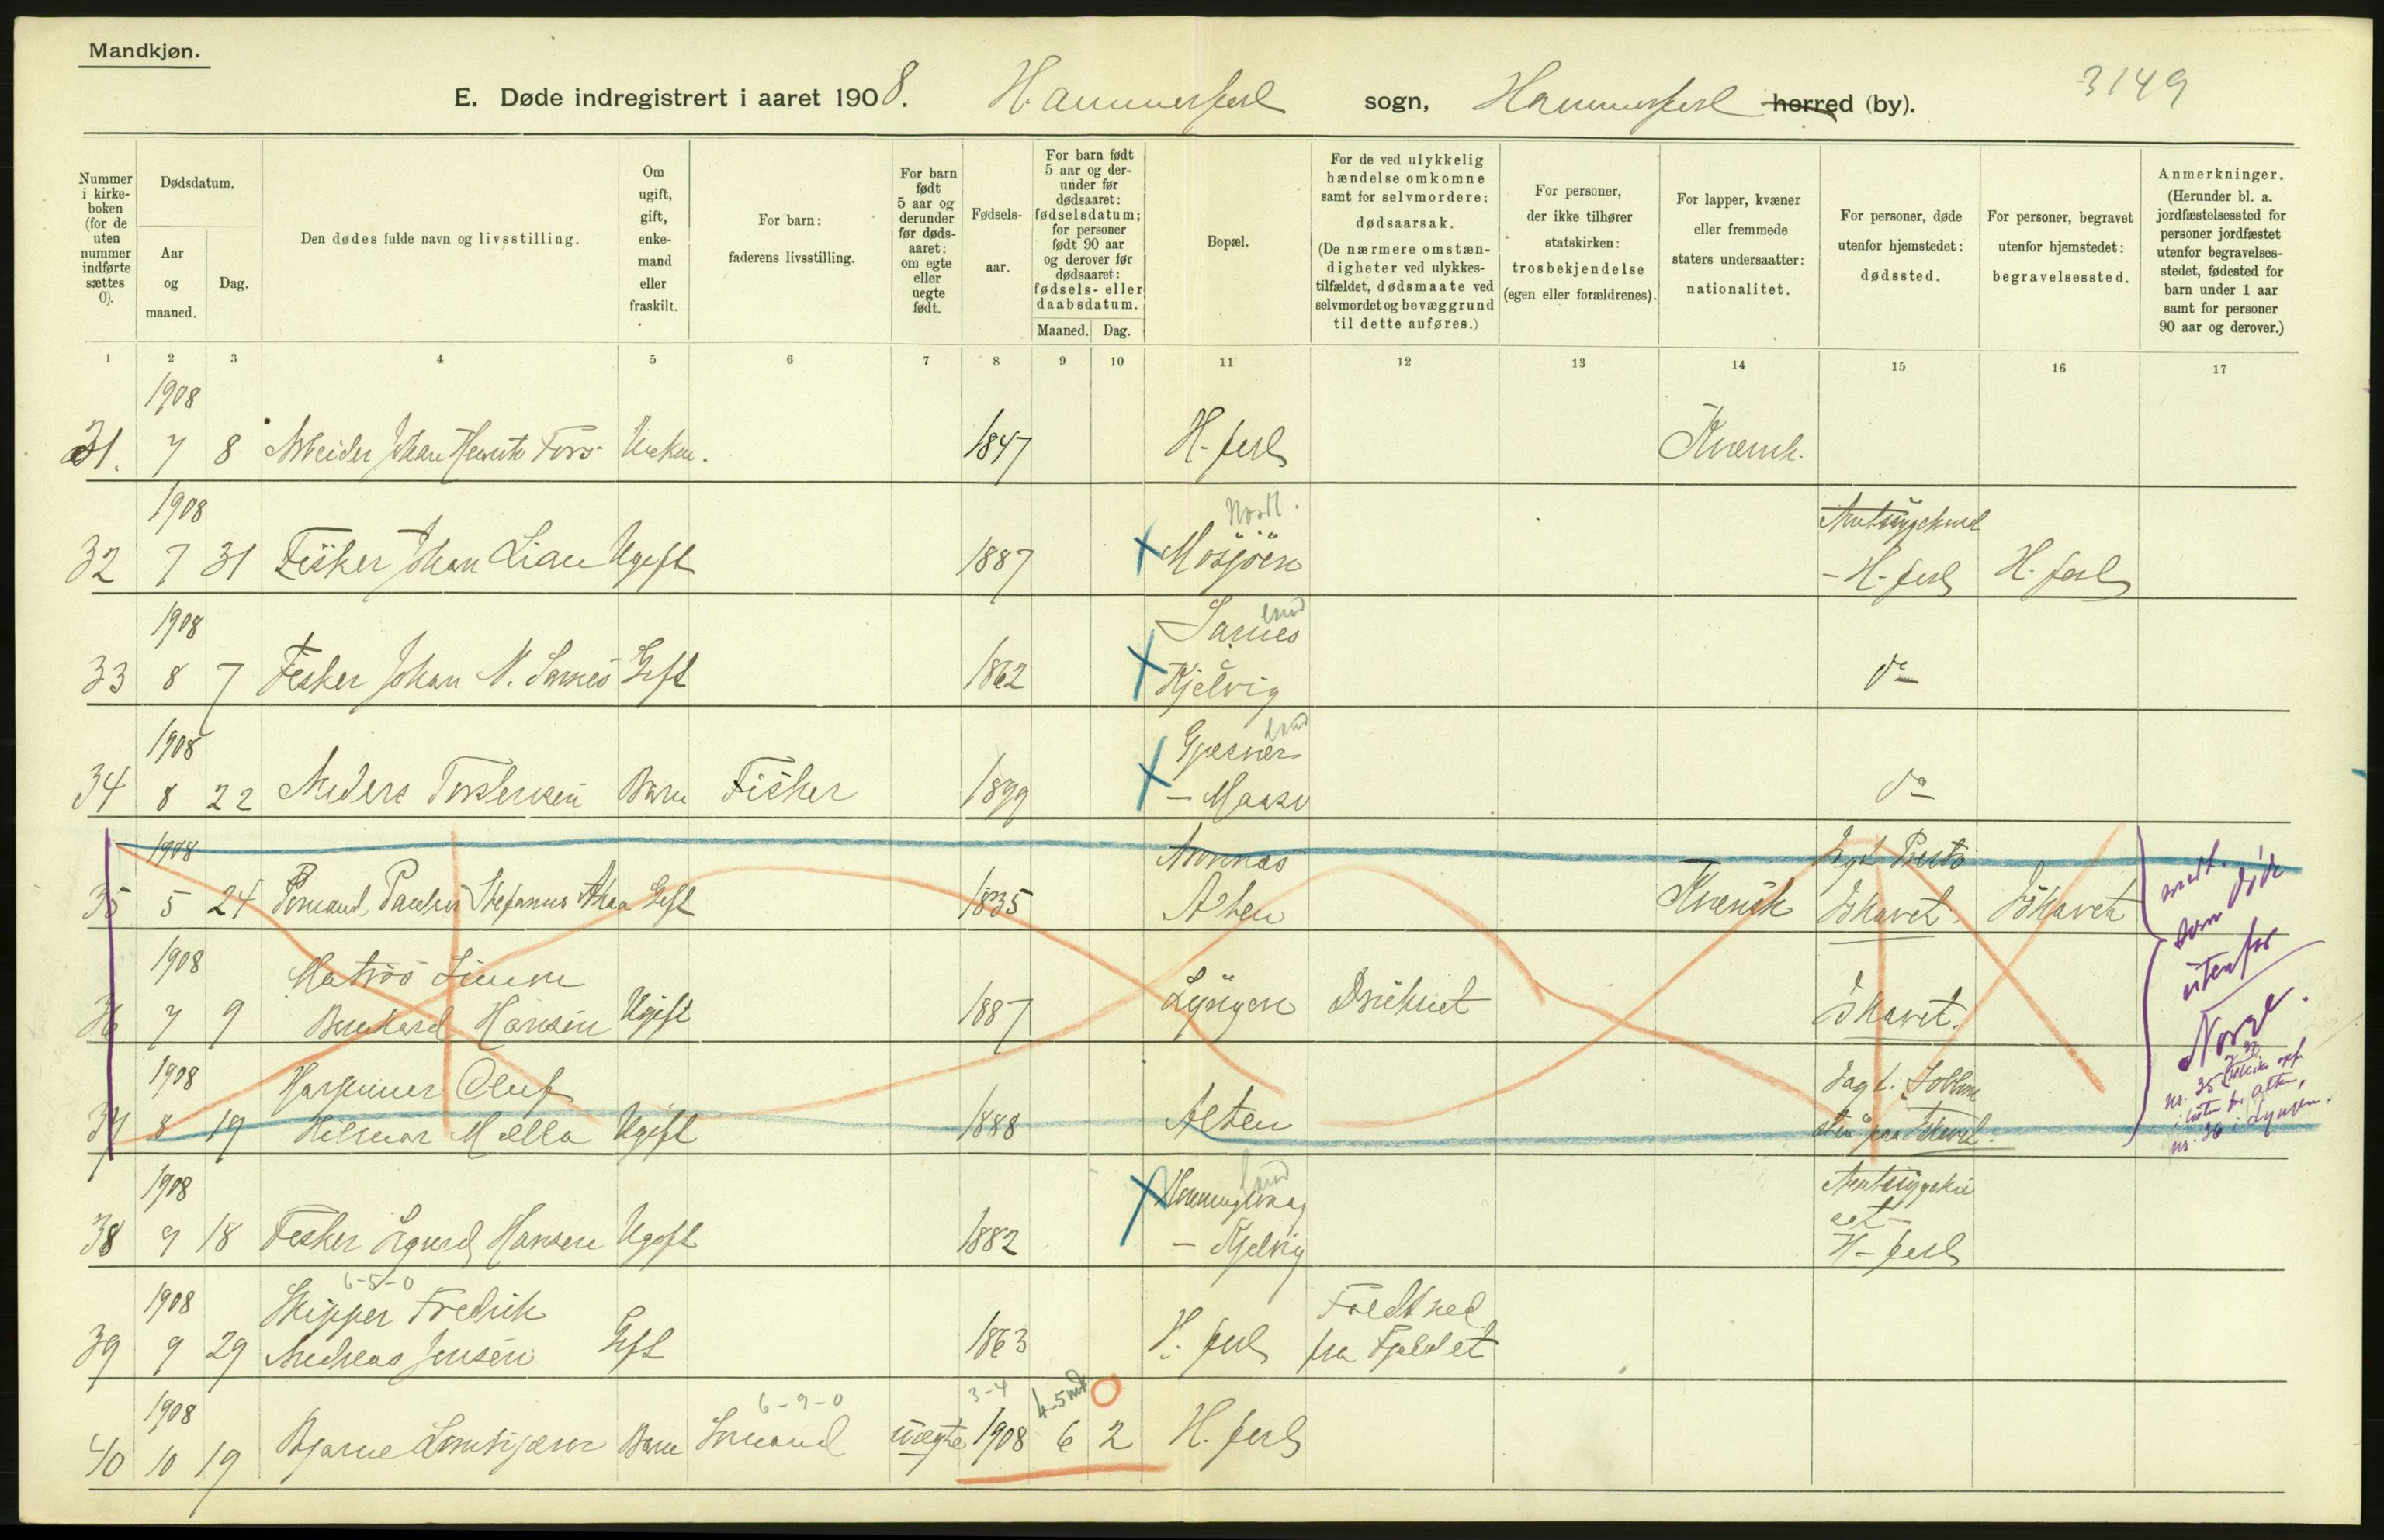 Mandkjøn.
E. Døde indregistrert i aaret 1908. Hammerfest sogn, Hammerfest herred (by). 3149
Nummer i kirke-boken (for de uten nummer indførte sættes 0).
Dødsdatum.
Aar og maaned.
Dag.
Den dødes fulde navn og livsstilling.
Om ugift, gift, enke-mand eller fraskilt.
For barn: faderens livsstilling.
For barn født 5 aar og derunder før døds-aaret: om egte eller uegte født.
Fødsels-aar.
For barn født 5 aar og der-under før dødsaaret: fødselsdatum; for personer født 90 aar og derover før dødsaaret: fødsels- eller daabsdatum.
Maaned. Dag.
Bopæl.
For de ved ulykkelig hændelse omkomne samt for selvmordere: dødsaarsak. (De nærmere omstæn-digheter ved ulykkes-tilfældet, dødsmaate ved selvmordet og bevæggrund til dette anføres.)
For personer, der ikke tilhører statskirken: trosbekjendelse (egen eller forældrenes).
For lapper, kvæner eller fremmede staters undersaatter: nationalitet.
For personer, døde utenfor hjemstedet: dødssted.
For personer, begravet utenfor hjemstedet: begravelsessted.
Anmerkninger. (Herunder bl. a. jordfæstelsessted for personer jordfæstet utenfor begravelses-stedet, fødested for barn under 1 aar samt for personer 90 aar og derover.)
1 2 3 4 5 6 7 8 9 10 11 12 13 14 15 16 17
1908
31. 7 8 Arbeider Johan Fors Enkem. 1847 H-fest Kvænsk.
1908 Nordl.
32 7 31 Fisker Johan Lian Ugift 1887 Mosjöen - H-fest H-fest
1908 Sarnes land
33 8 7 Fisker Johan N. Sarnes Gift 1862 Kjelvig do
1908 Gjesvær land
34 8 22 Anders Torstensen Barn Fisker 1899 - Maasø do
1908
35 5 24 Stefanus Gift 1835 Alten Kvensk Ishavet. Ishavet
1908 Matros
36 7 9 Bernhard Hansen Ugift 1887 Lyngen Druknet Ishavet.
1908 Harpuner Oluf
37 8 19 Hilmar Mella Ugift 1888 Alten paa Ishavet.
som död
utenfor
Norge.
nr. 36 i Lyngen.
1908 Honningsvaag land
38 9 18 Fisker Sigurd Hansen Ugift 1882 - Kjelvig H-fest
6-5-0
1908 Skipper Fredrik Faldt ned
39 9 29 Andreas Jensen Gift 1863 H-fest fra Fjeldet
6-9-0 3-4 4-5 md
1908
40 10 19 Bjarne Barn Sömand uægte 1908 6 2 H-fest